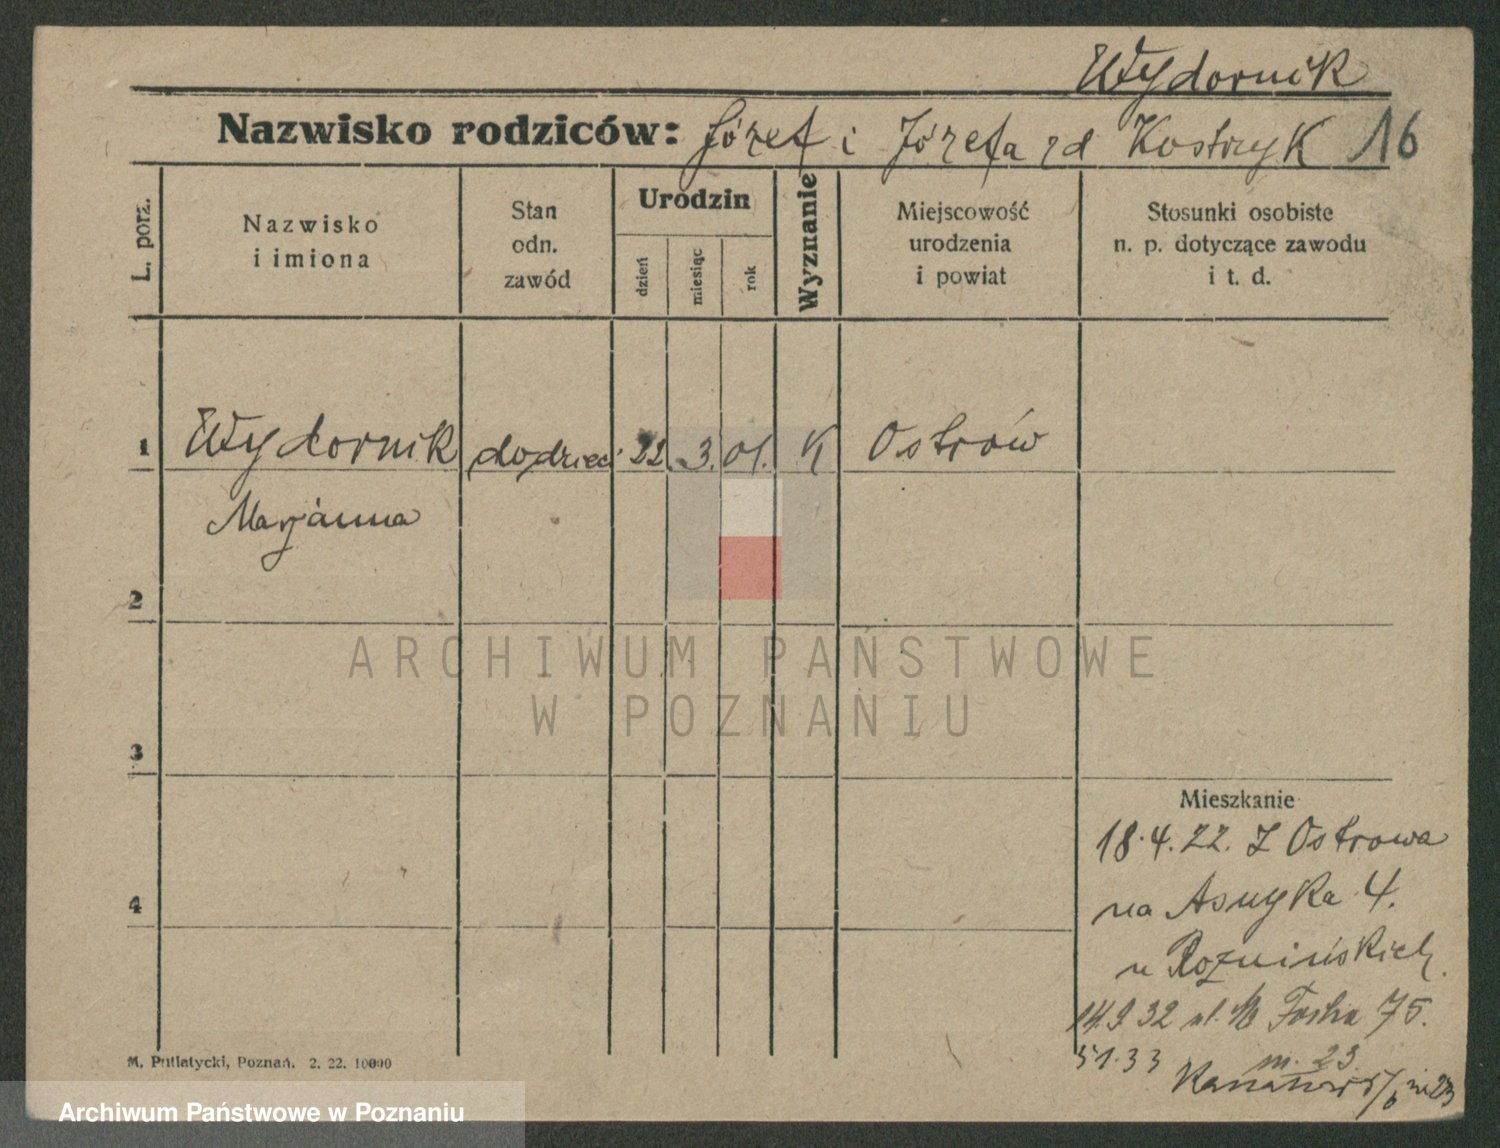 Wydornik
Nazwisko rodziców: Józef i Józefa zd Kostrzyk 16
L. porz.
Nazwisko
i imiona
Stan
odn.
zawód
Urodzin
dzień
miesiąc
rok
Wyznanie
Miejscowość
urodzenia
i powiat
Stosunki osobiste
n. p. dotyczące zawodu
i t. d.
1 Wydornik do dzieci 22 3. 01. K Ostrów
Marjanna
2
3
4
ARCHIWUM PAŃSTWOWE
W POZNANIU
Mieszkanie
18.4.22. Z Ostrowa
na Asnyka 4.
u
14.9 32 ul. M Focha 75.
m. 23
5 1. 33
M. Putiatycki, Poznań. 2. 22. 10000
Archiwum Państwowe w Poznaniu